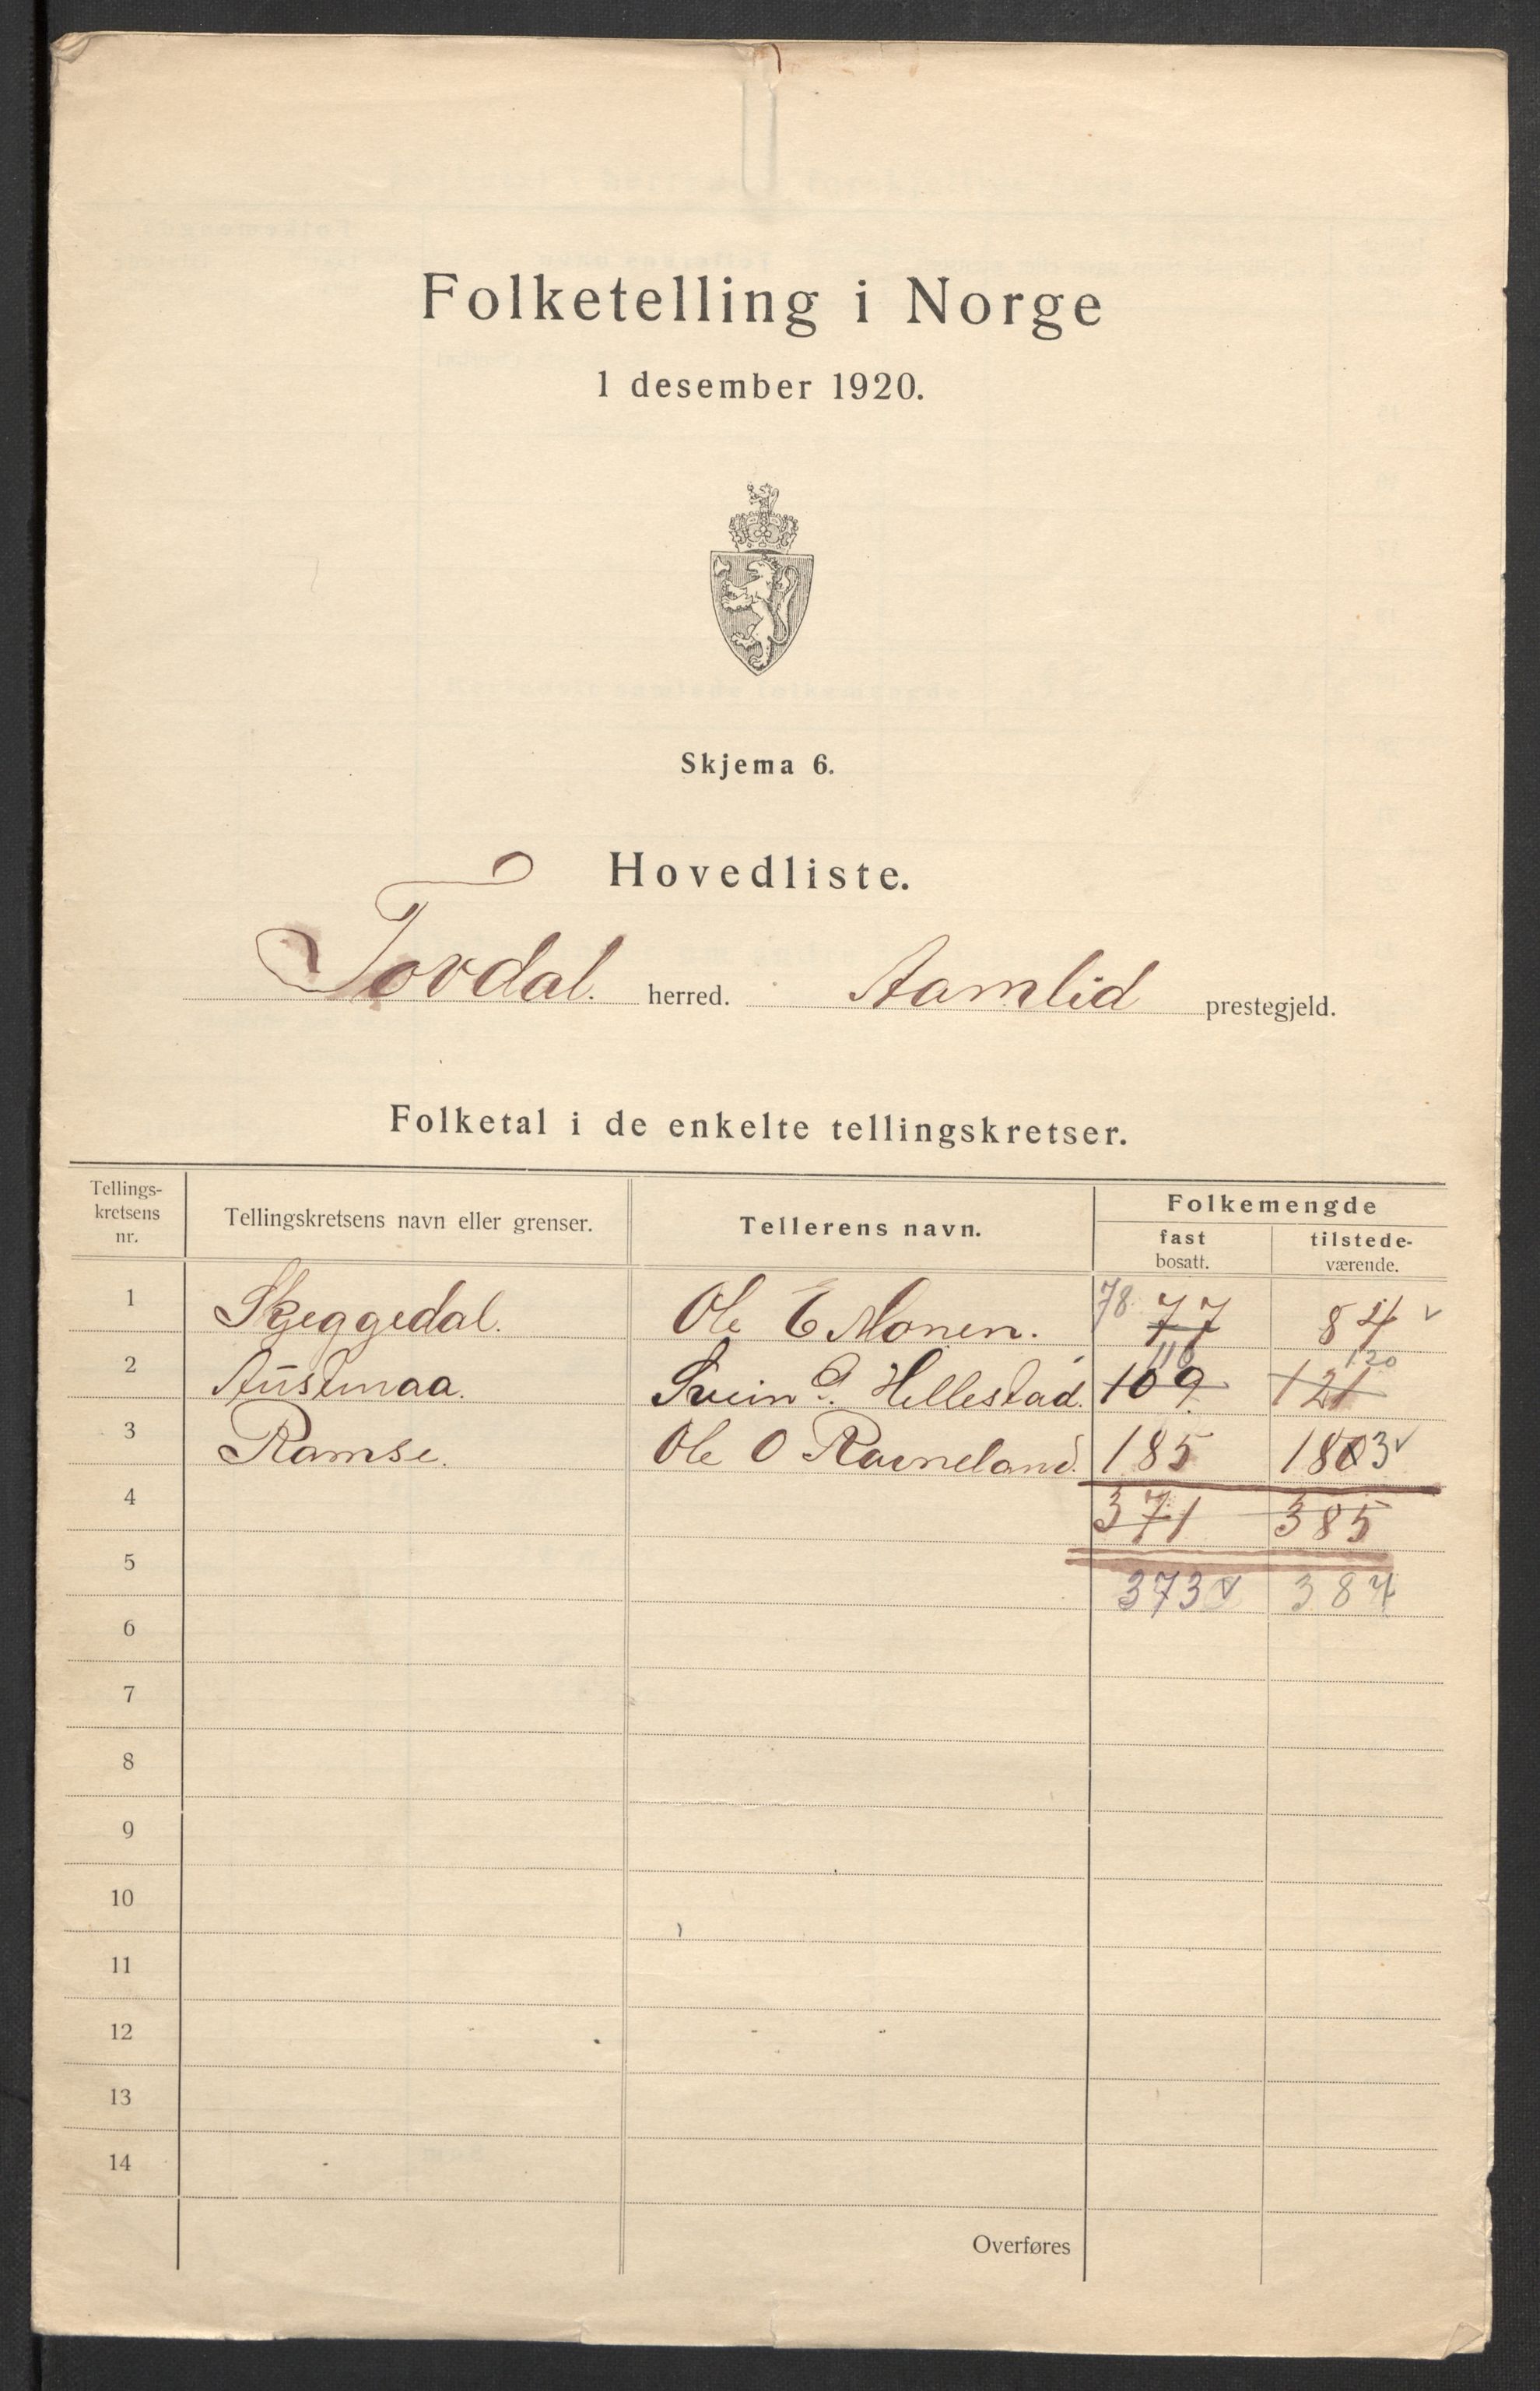 Folketelling i Norge
1 desember 1920.
Skjema 6.
Hovedliste.
Tovdal. herred. Aamlid prestegjeld.
Folketal i de enkelte tellingskretser.
Tellings-
kretsens
nr.
Tellingskretsens navn eller grenser.
Tellerens navn.
Folkemengde
fast
bosatt.
tilstede-
værende.
1 Skjeggedal. Ole E Monen. 78 77 84
2 Austenaa. Svein Hellestad. 110 109 120 121
3 Ramse. Ole O Ravneland. 185 183
4 371 385
5 373 384
6
7
8
9
10
11
12
13
14
Overføres